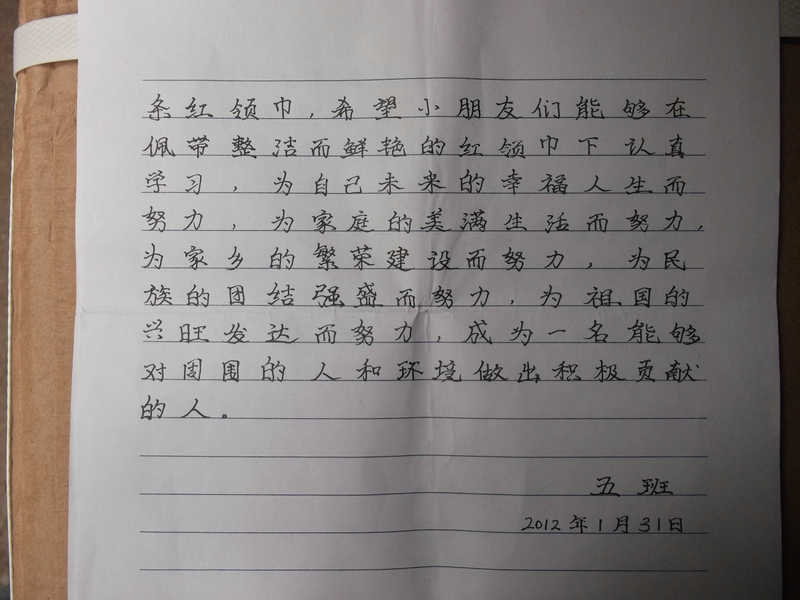 条红领巾，希望小朋友们能够在
佩带整洁而鲜艳的红领巾下认真
学习，为自己未来的幸福人生而
努力，为家庭的美满生活而努力，
为家乡的繁荣建设而努力，为民
族的团结强盛而努力，为祖国的
兴旺发达而努力，成为一名能够
对周围的人和环境做出积极贡献
的人。
五班
2012年1月31日